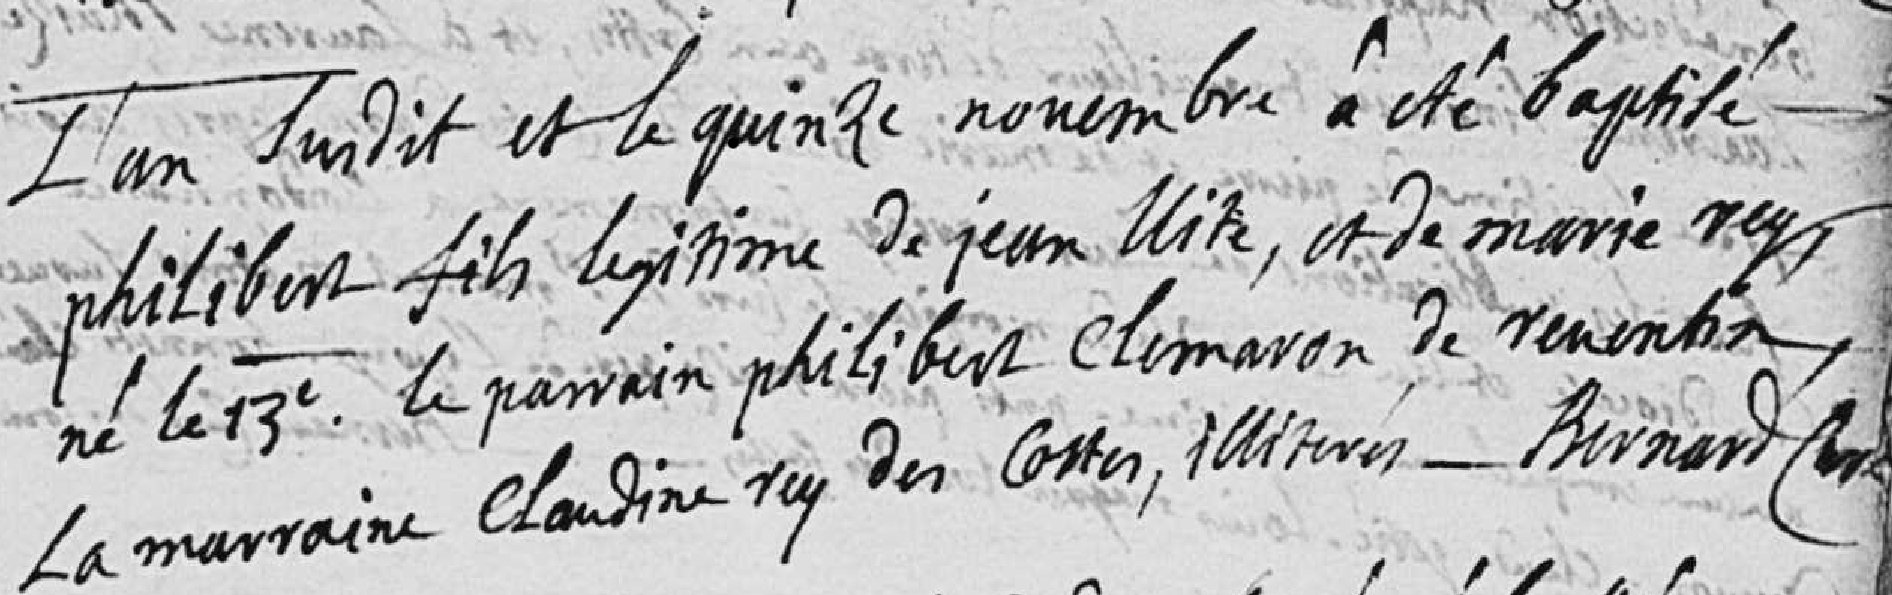 L'an susdit et le quinze novembre â eté baptisé
philibert fils legitime de jean Uite, et de marie rey,
né le 13e. le parrain philibert Clemaron de reventin,
La marraine Claudine rey des Cottes, illiterés — Bernard Curé